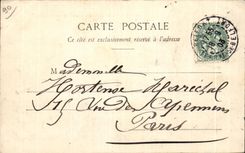 90
CARTE POSTALE
Ce côté est exclusivement réservé à l'adresse
Mademoiselle
Hortense Maréchal
15 Rue des Apennins
Paris